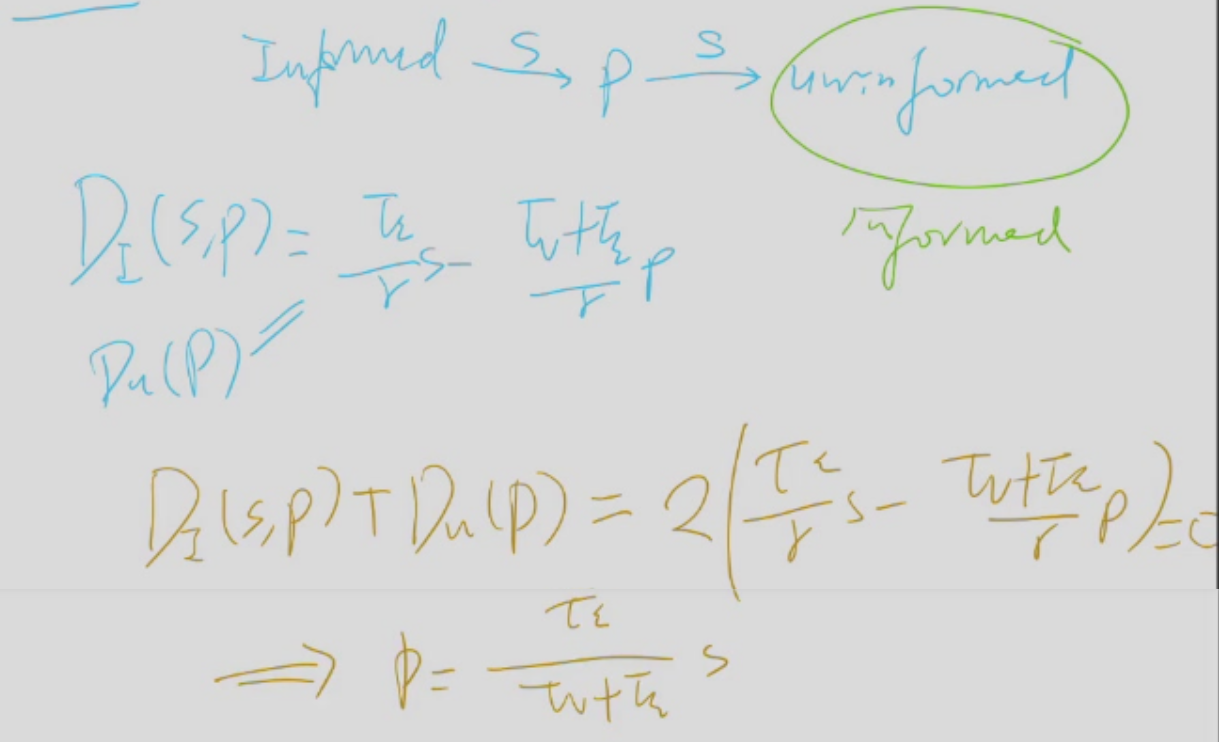 Informed —S→ p —S→ uninformed
informed
D_I(s,p) = τ_ε/γ s - (τ_v+τ_ε)/γ p
D_u(p) =
D_I(s,p) + D_u(p) = 2(τ_ε/γ s - (τ_v+τ_ε)/γ p) = 0
⟹ p = τ_ε/(τ_v+τ_ε) s